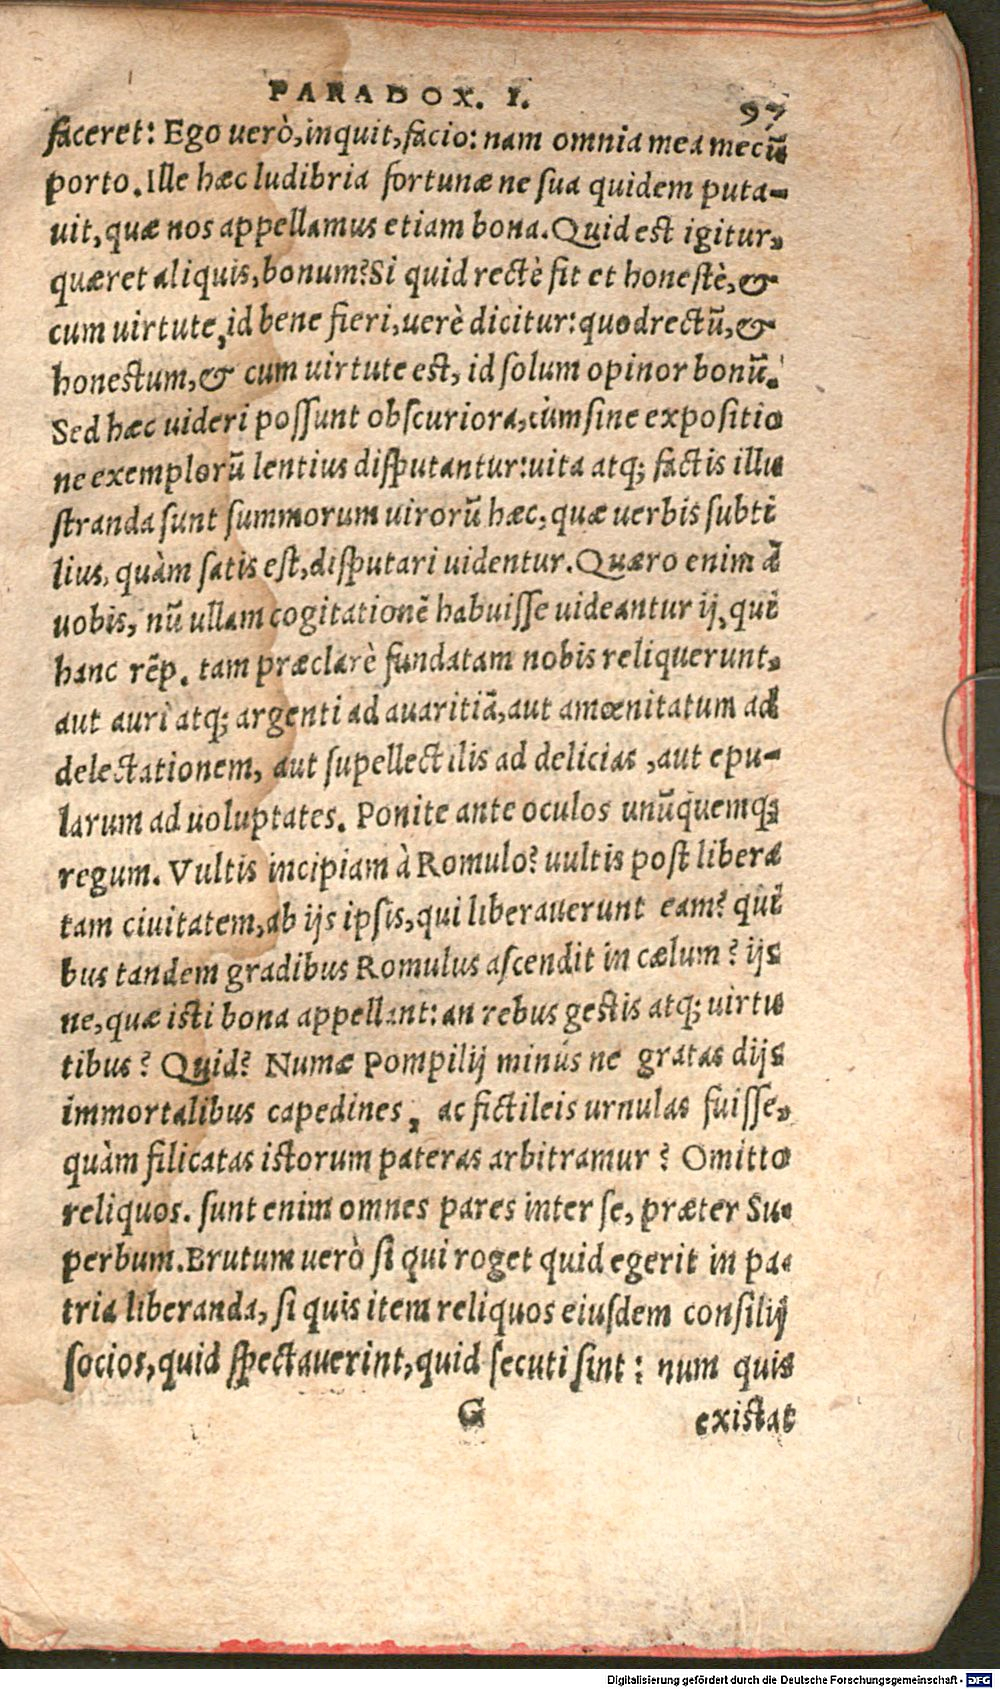 PARADOX. I. 97
faceret: Ego uerò, inquit, facio: nam omnia mea mecũ
porto. Ille hæc ludibria fortunæ ne sua quidem puta-
uit, quæ nos appellamus etiam bona. Quid est igitur,
quæret aliquis, bonum? Si quid rectè fit et honestè, &
cum uirtute, id bene fieri, uerè dicitur: quod rectũ, &
honestum, & cum uirtute est, id solum opinor bonũ.
Sed hæc uideri possunt obscuriora, cùm sine expositio
ne exemplorũ lentius disputantur: uita atq; factis illu
stranda sunt summorum uirorũ hæc, quæ uerbis subti
lius, quàm satis est, disputari uidentur. Quæro enim à
uobis, nũ ullam cogitationẽ habuisse uideantur ij, qui
hanc rẽp. tam præclarè fundatam nobis reliquerunt,
aut auri atq; argenti ad auaritiã, aut amœnitatum ad
delectationem, aut supellectilis ad delicias, aut epu-
larum ad uoluptates. Ponite ante oculos unũquemq;
regum. Vultis incipiam à Romulo? uultis post libera
tam ciuitatem, ab ijs ipsis, qui liberauerunt eam? qui
bus tandem gradibus Romulus ascendit in cælum? ijs
ne, quæ isti bona appellant: an rebus gestis atq; uirtu
tibus? Quid? Numæ Pompilij minús ne gratas dijs
immortalibus capedines, ac fictileis urnulas fuisse,
quàm filicatas istorum pateras arbitramur? Omitto
reliquos. sunt enim omnes pares inter se, præter Su-
perbum. Brutum uerò si qui roget quid egerit in pa-
tria liberanda, si quis item reliquos eiusdem consilij
socios, quid spectauerint, quid secuti sint: num quis
G existat
Digitalisierung gefördert durch die Deutsche Forschungsgemeinschaft - DFG